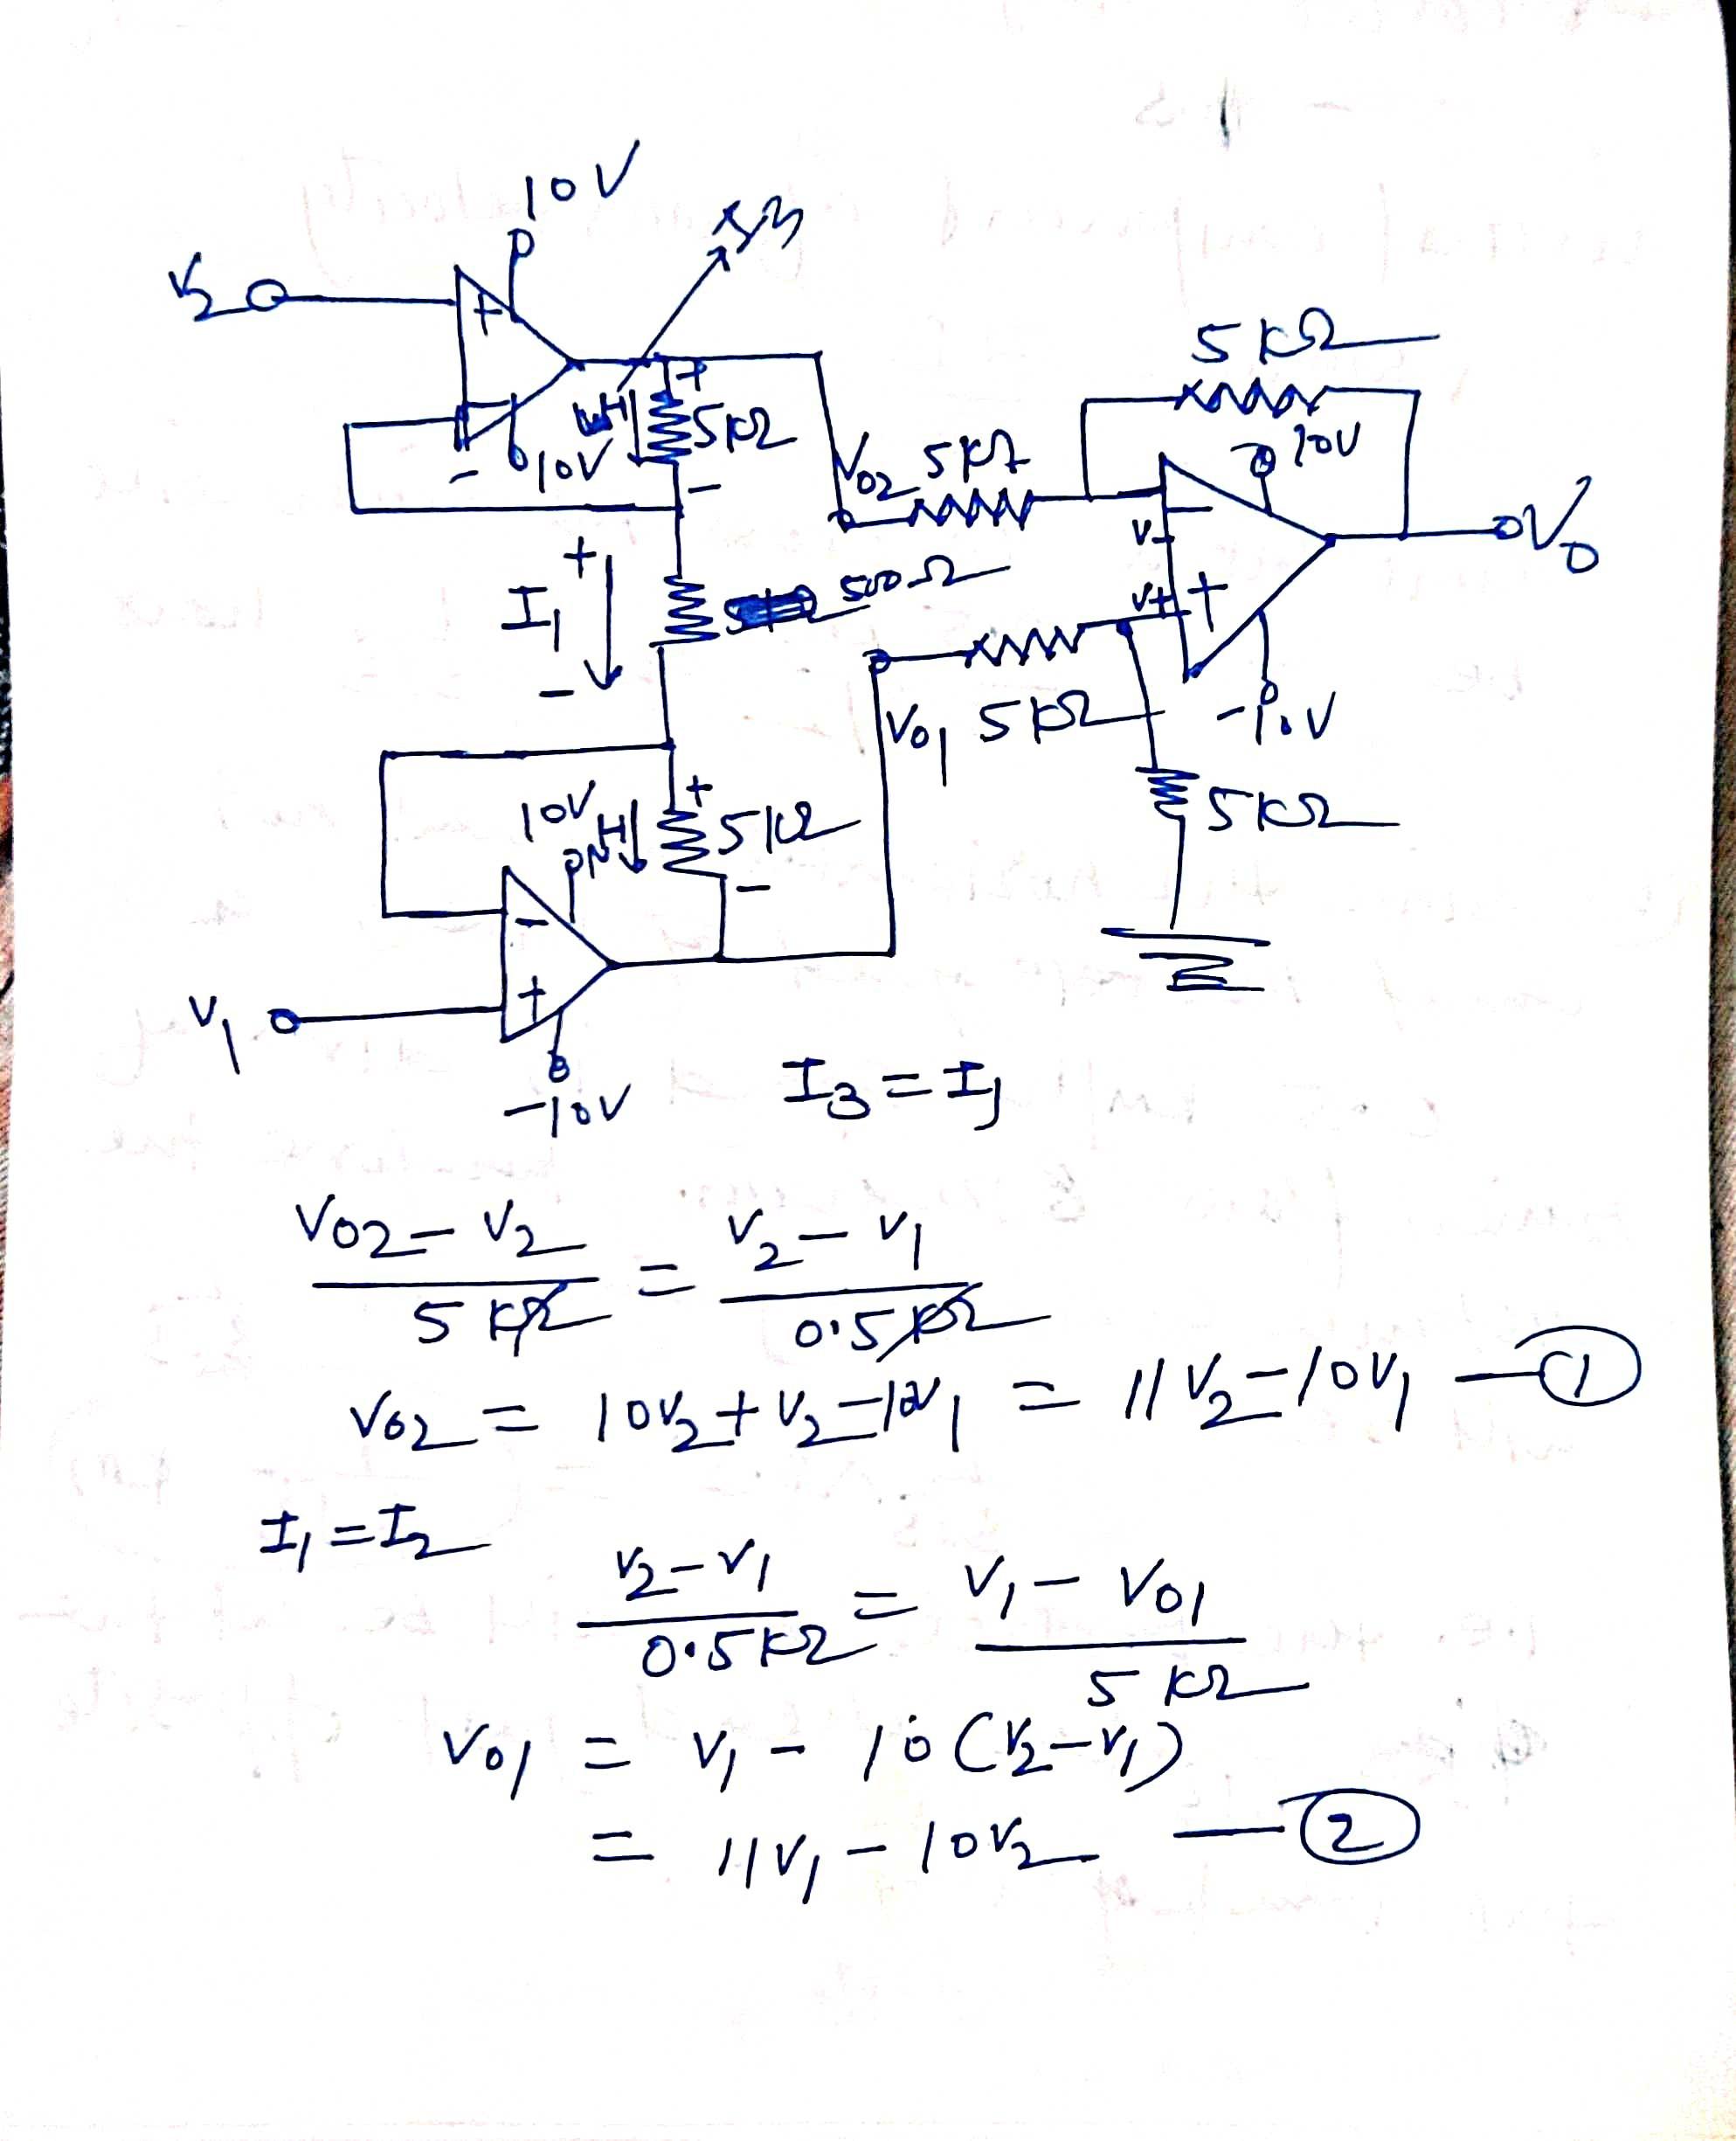 10V
V2
5KΩ
-
10V
+
5KΩ
-
VO2
5KΩ
10V
VO
I1
+
-
500Ω
V-
V+
VO1
5KΩ
-10V
10V
+
5KΩ
-
5KΩ
V1
-10V
I3 = I1
VO2 - V2 / 5KΩ = V2 - V1 / 0.5KΩ
VO2 = 10V2 + V2 - 10V1 = 11V2 - 10V1 — ①
I1 = I2
V2 - V1 / 0.5KΩ = V1 - VO1 / 5KΩ
VO1 = V1 - 10(V2 - V1)
= 11V1 - 10V2 — ②